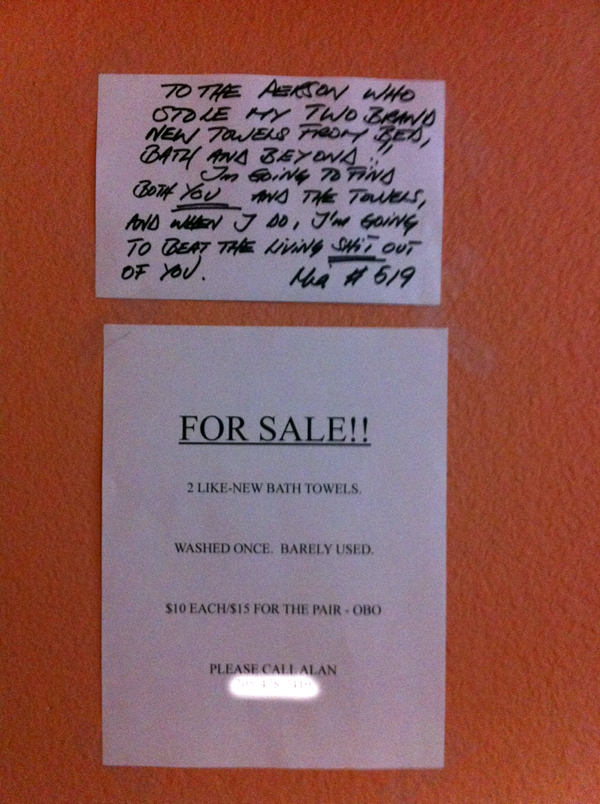 TO THE PERSON WHO
STOLE MY TWO BRAND
NEW TOWELS FROM BED,
BATH AND BEYOND!!
I'm GOING TO FIND
BOTH YOU AND THE TOWELS,
AND WHEN I DO, I'M GOING
TO BEAT THE LIVING SHIT OUT
OF YOU. Mia # 519
FOR SALE!!
2 LIKE-NEW BATH TOWELS.
WASHED ONCE. BARELY USED.
$10 EACH/$15 FOR THE PAIR - OBO
PLEASE CALL ALAN